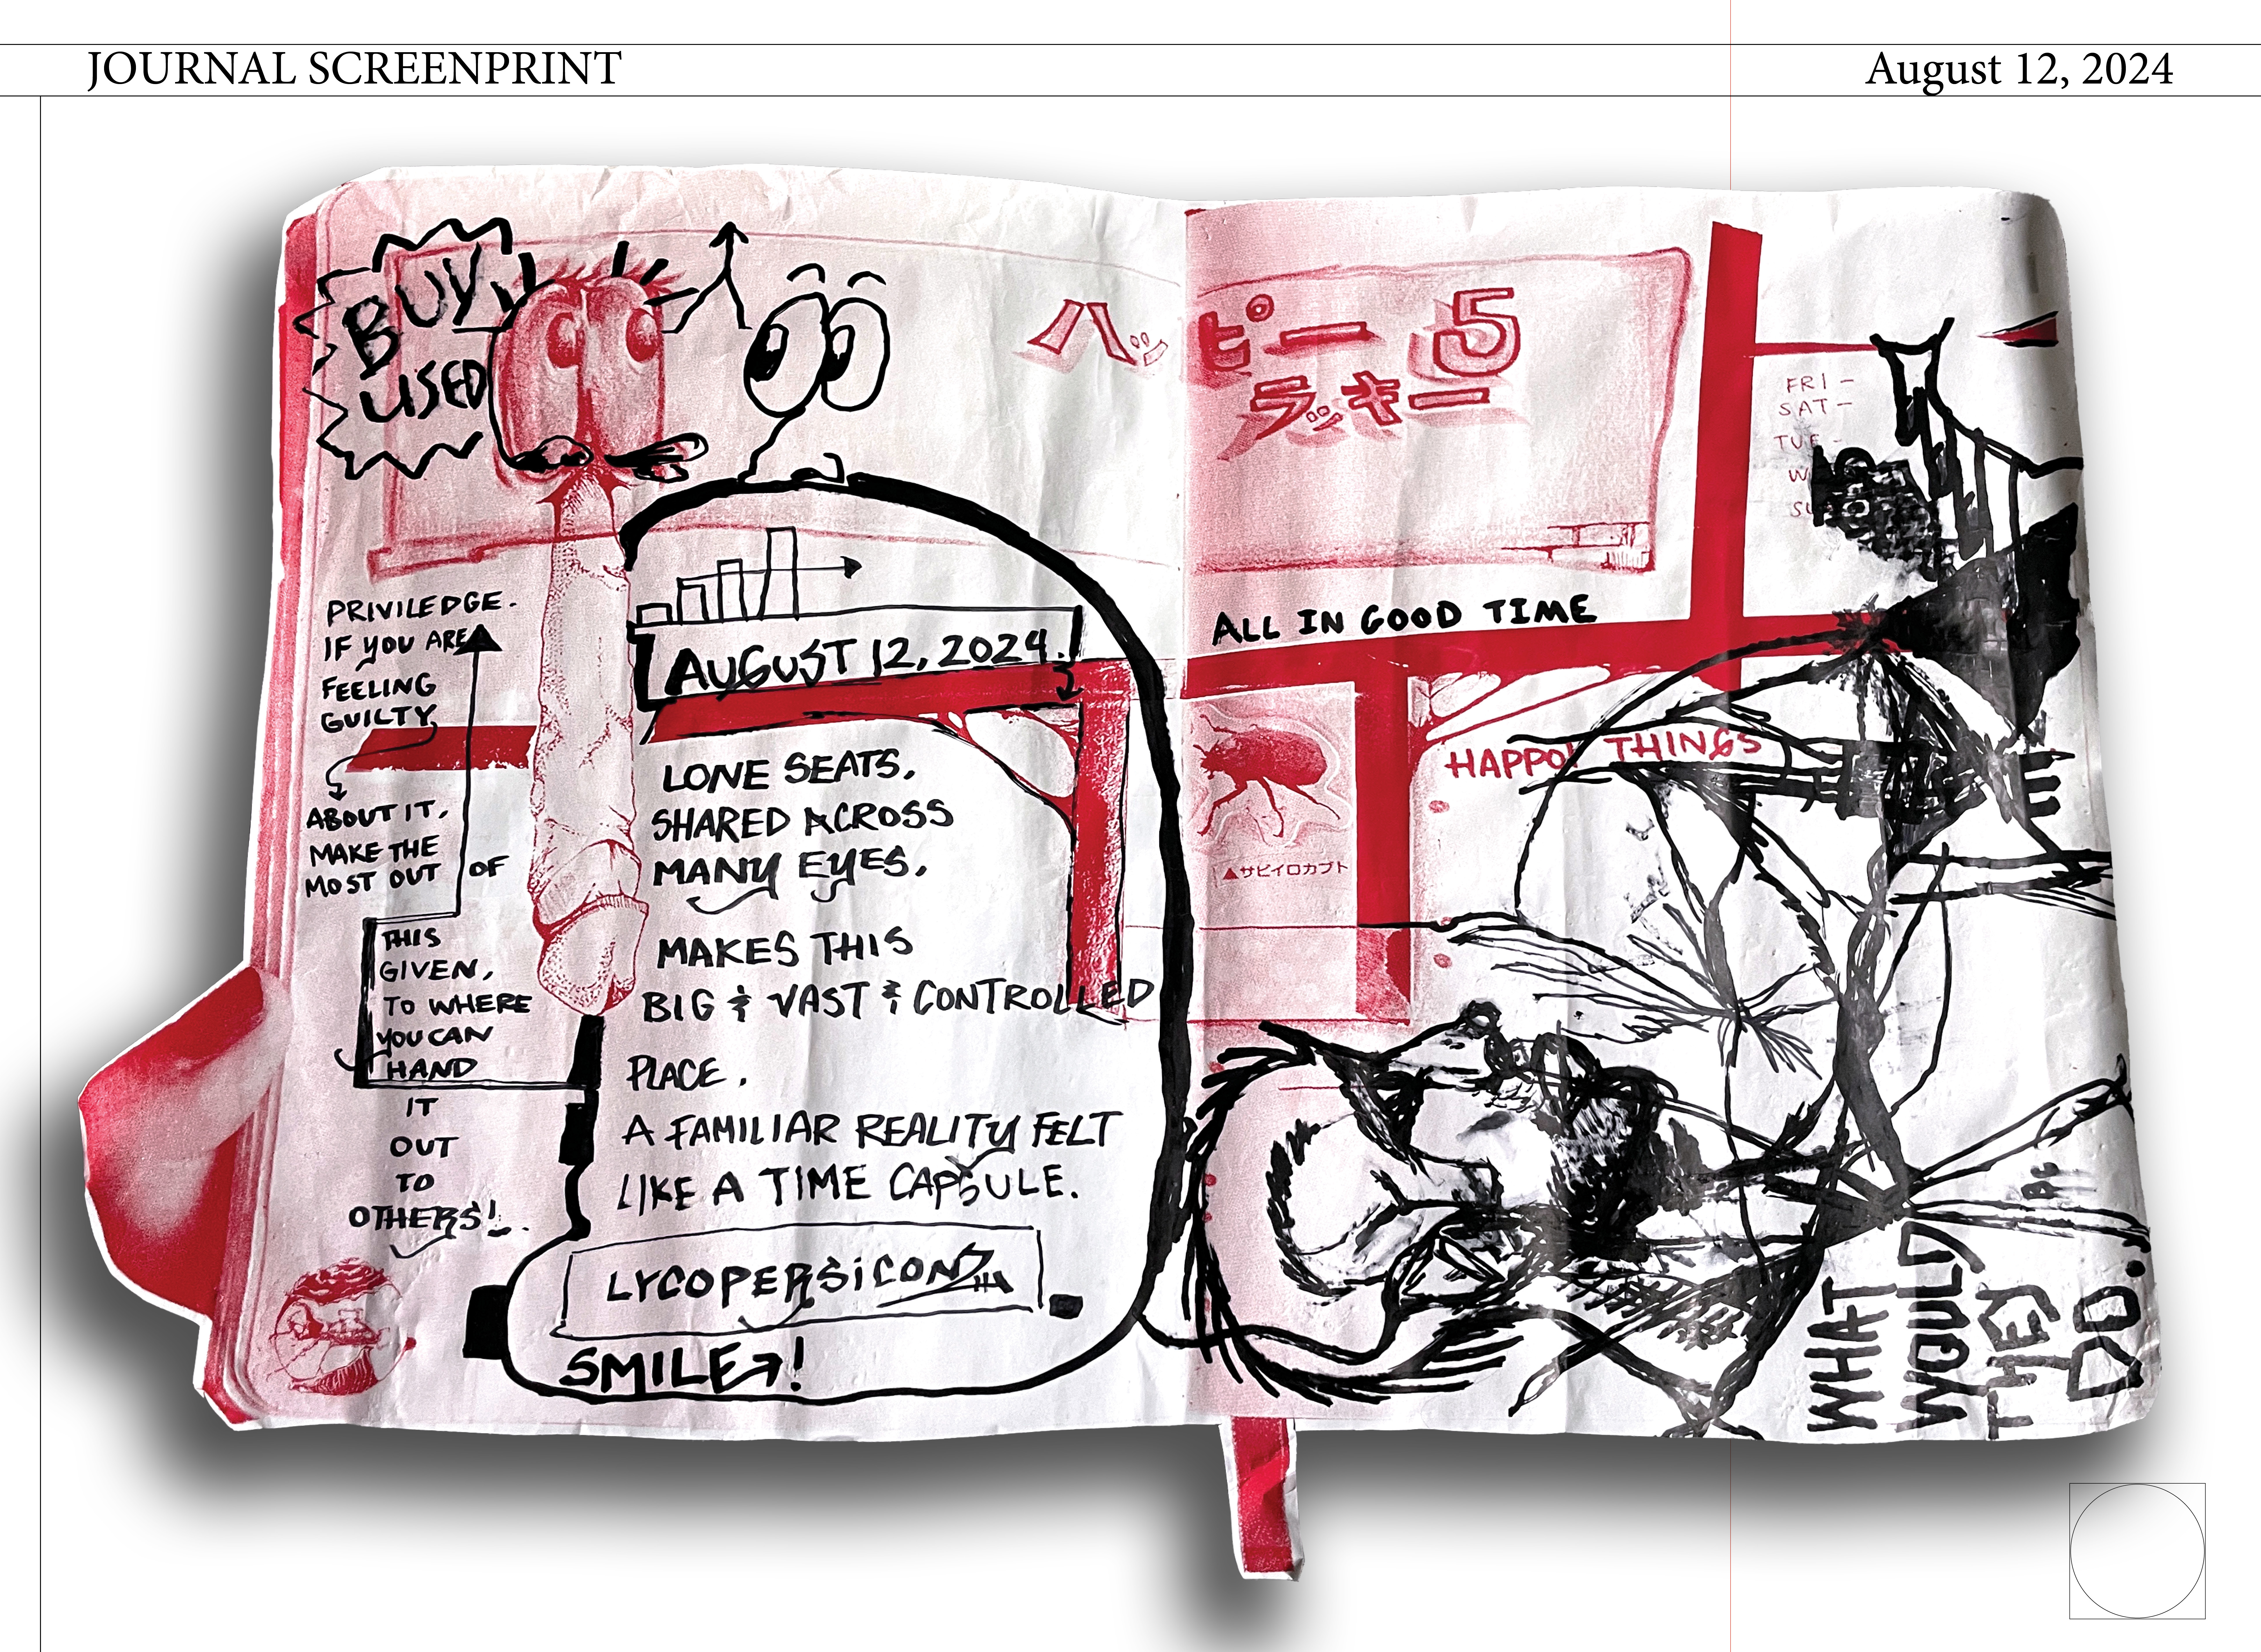 JOURNAL SCREENPRINT
August 12, 2024
BUY
USED
PRIVILEDGE.
IF YOU ARE
FEELING
GUILTY
ABOUT IT,
MAKE THE
MOST OUT OF
THIS
GIVEN,
TO WHERE
YOU CAN
HAND
IT
OUT
TO
OTHERS!
AUGUST 12, 2024.
LONE SEATS,
SHARED ACROSS
MANY EYES,
MAKES THIS
BIG & VAST & CONTROLLED
PLACE.
A FAMILIAR REALITY FELT
LIKE A TIME CAPSULE.
LYCOPERSICON
SMILE→!
ハッピー5
ラッキー
ALL IN GOOD TIME
FRI -
SAT -
TUE -
▲サビイロカブト
HAPPO! THINGS
WHAT
WOULD
THEY
DO.